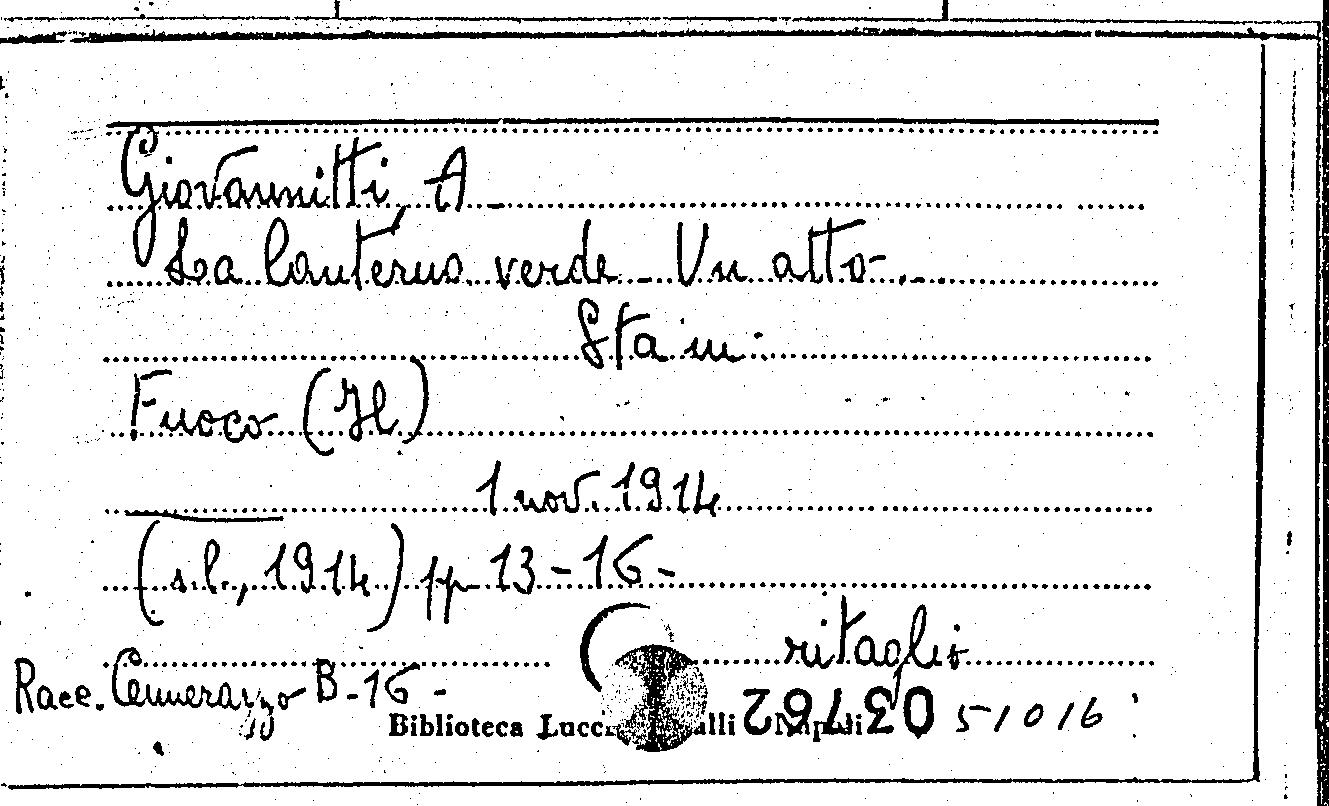 Giovannitti, A.
La lanterna verde. Un atto.
Sta in:
Fuoco (Il)
1 nov. 1914
(s.l., 1914) pp 13-16-
ritaglio
Racc. Cennerazzo B-16-
Biblioteca Lucchesi Palli Napoli 51016